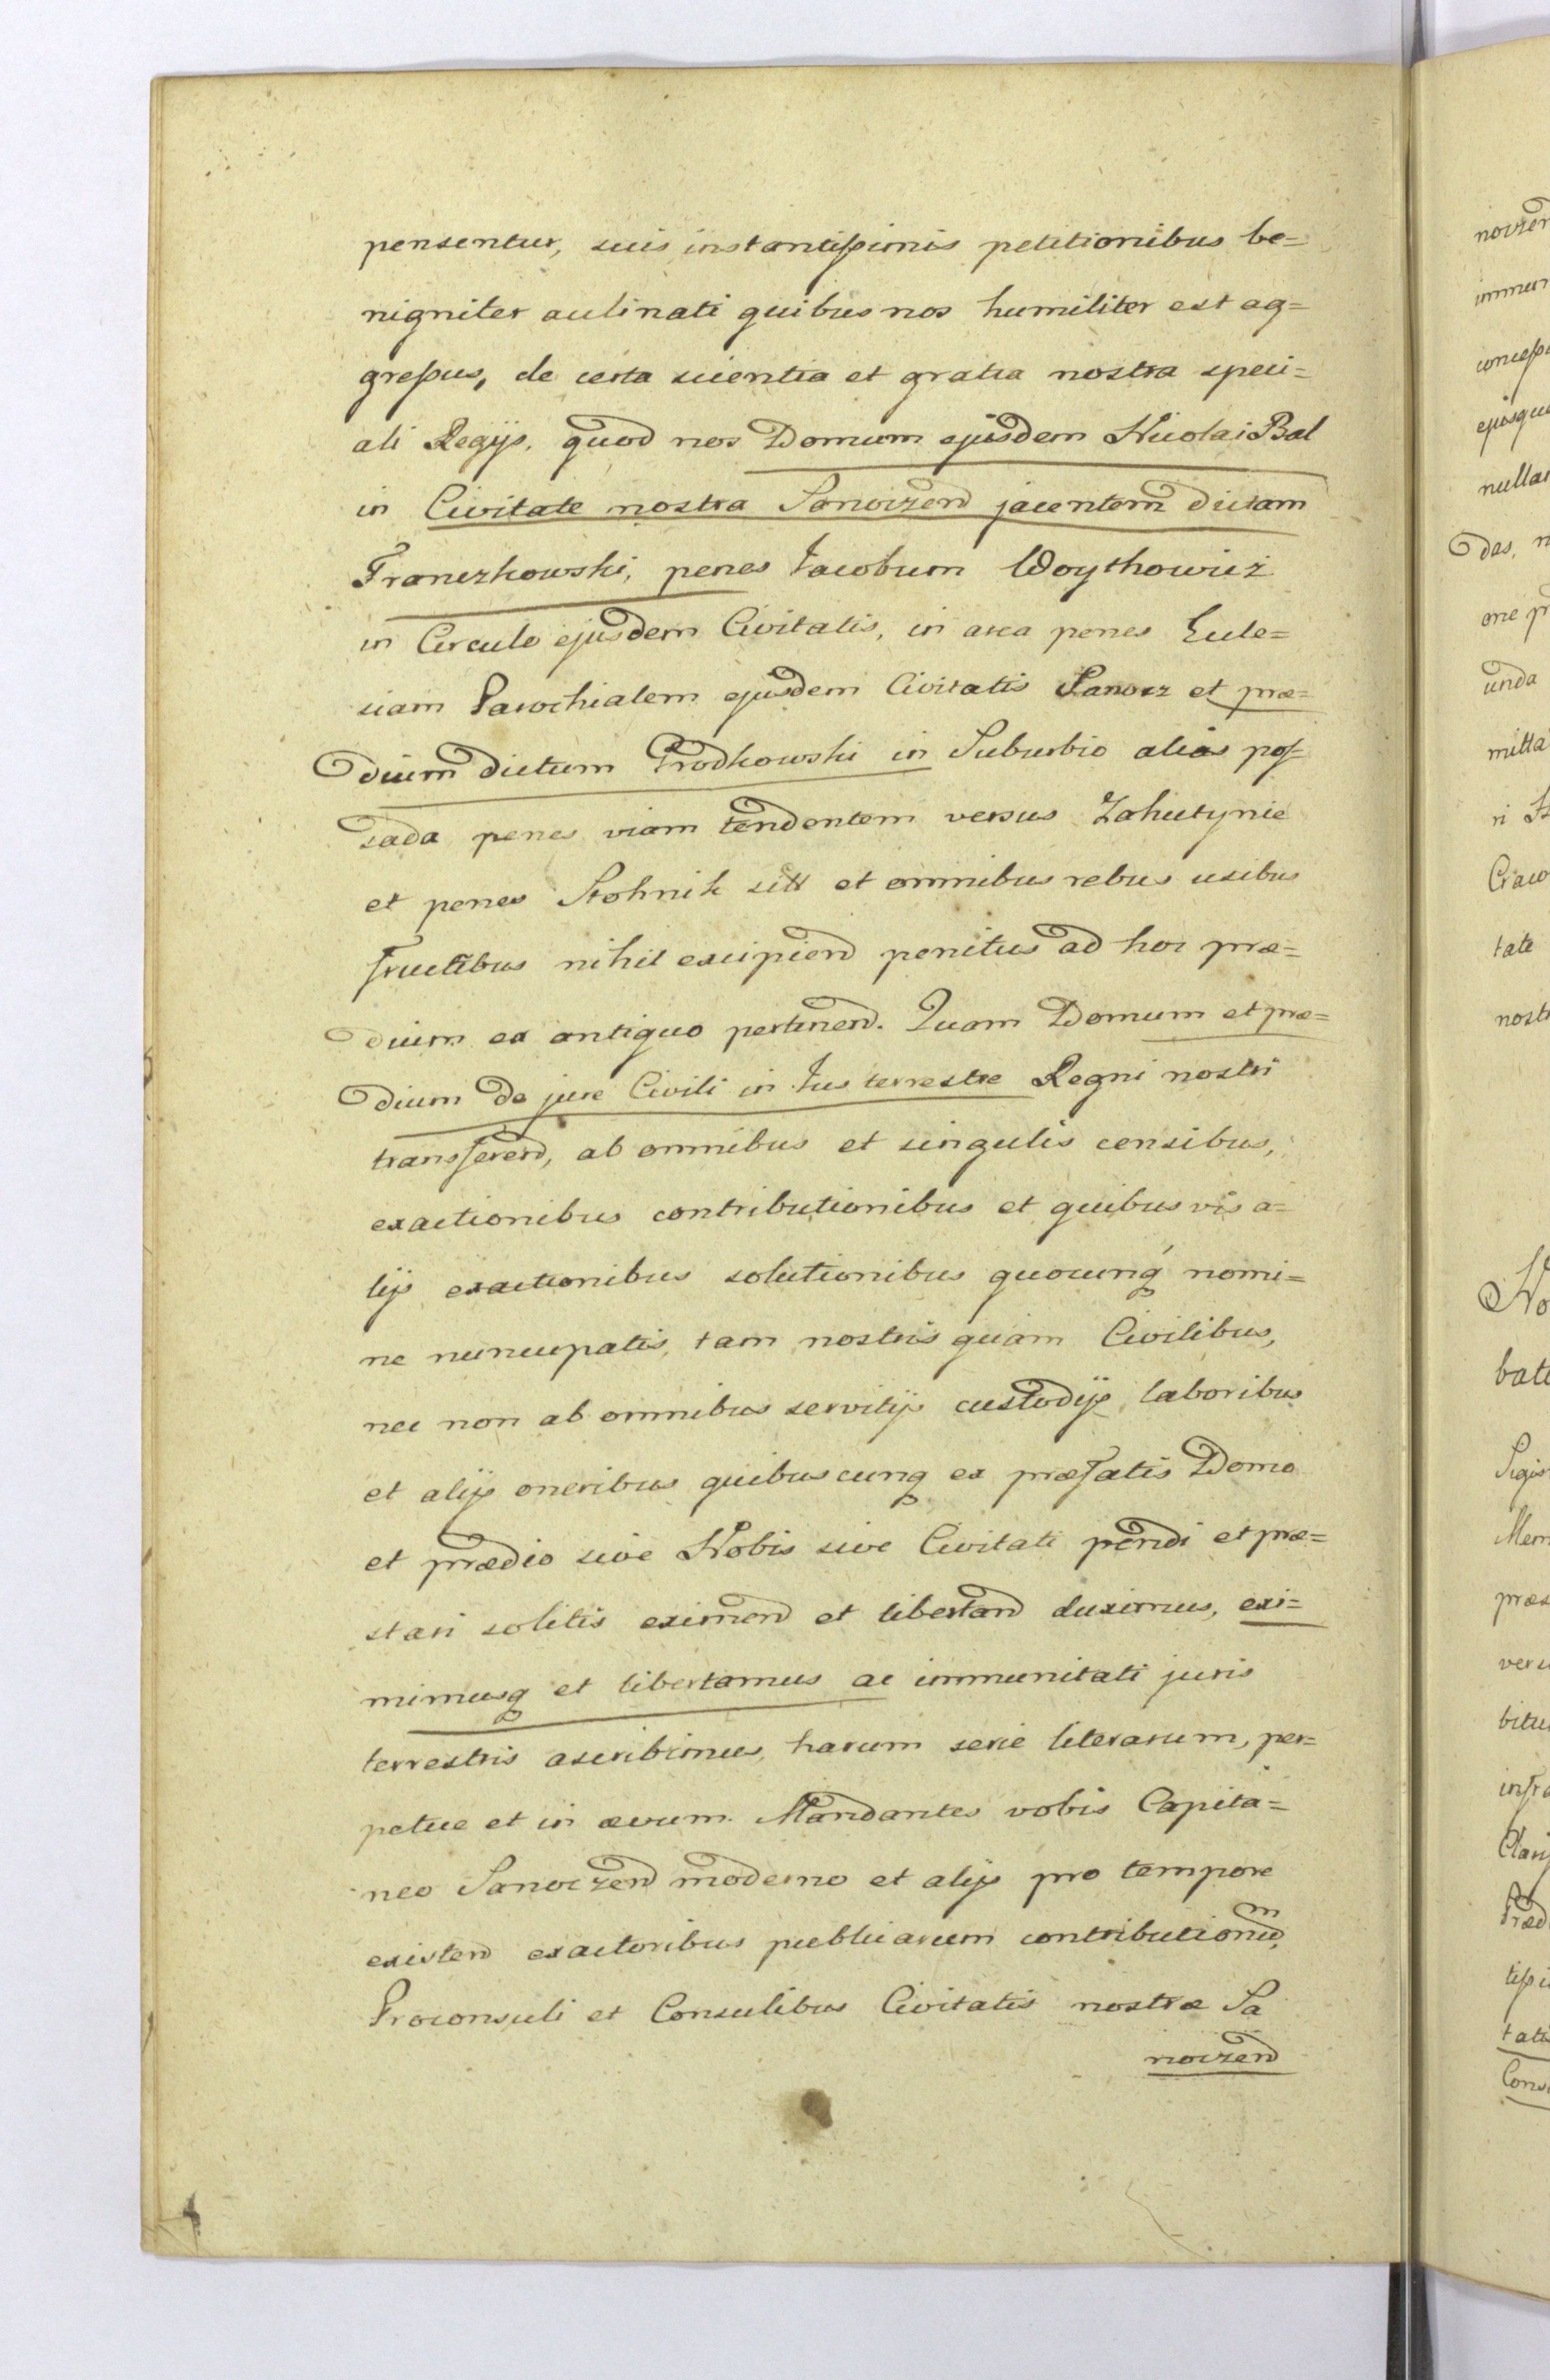 pensentur, suis instantissimis petitionibus be=
nigniter aclinati quibus nos humiliter est ag=
gressus, de certa scientia et gratia nostra speci=
ali Regijs. quod nos Domum ejusdem Nicolai Bal
in Civitate nostra Sanoczen jacentem dictam
Franczkowski, penes Jacobum Woythowicz
in Circulo ejusdem Civitatis, in area penes Eccle=
siam Parochialem ejusdem Civitatis Sanocz et præ=
dium dictum Prodkowski in Suburbio alias pos=
sada penes viam tendentem versus Zahutynie
et penes Stohnik sitt et omnibus rebus usibus
fructibus nihil excipiend penitus ad hoc præ=
dium ex antiquo pertinend. Quam Domum et præ=
dium de jure Civili in Jus terrestre Regni nostri
transferend, ab omnibus et singulis censibus,
exactionibus contributionibus et quibus vis a=
lijs exactionibus solutionibus quocunq nomi=
ne nuncupatis, tam nostris quam Civilibus,
nec non ab omnibus servitijs custodijs laboribus
et alijs oneribus quibuscunq ex præfatis Domo
et prædio sive Nobis sive Civitati pendi et præ=
stari solitis eximend et libertand duximus, exi=
mimusq et libertamus ac immunitati juris
terrestris ascribimus, harum serie literarum, per=
petue et in ævum. Mandantes vobis Capita=
neo Sanoczen moderno et alijs pro tempore
existen exactoribus publicarum contributionum,
Proconsuli et Consulibus Civitatis nostræ Sa
noczen
noczen
immun
concess
ejusque
nullas
das, n
one p
unda
mitta
ri
Craco
tate
nostr
No
bat
Sigis
Mem
præs
versu
bitu
infra
Clari
Præd
tissi
tati
Cons